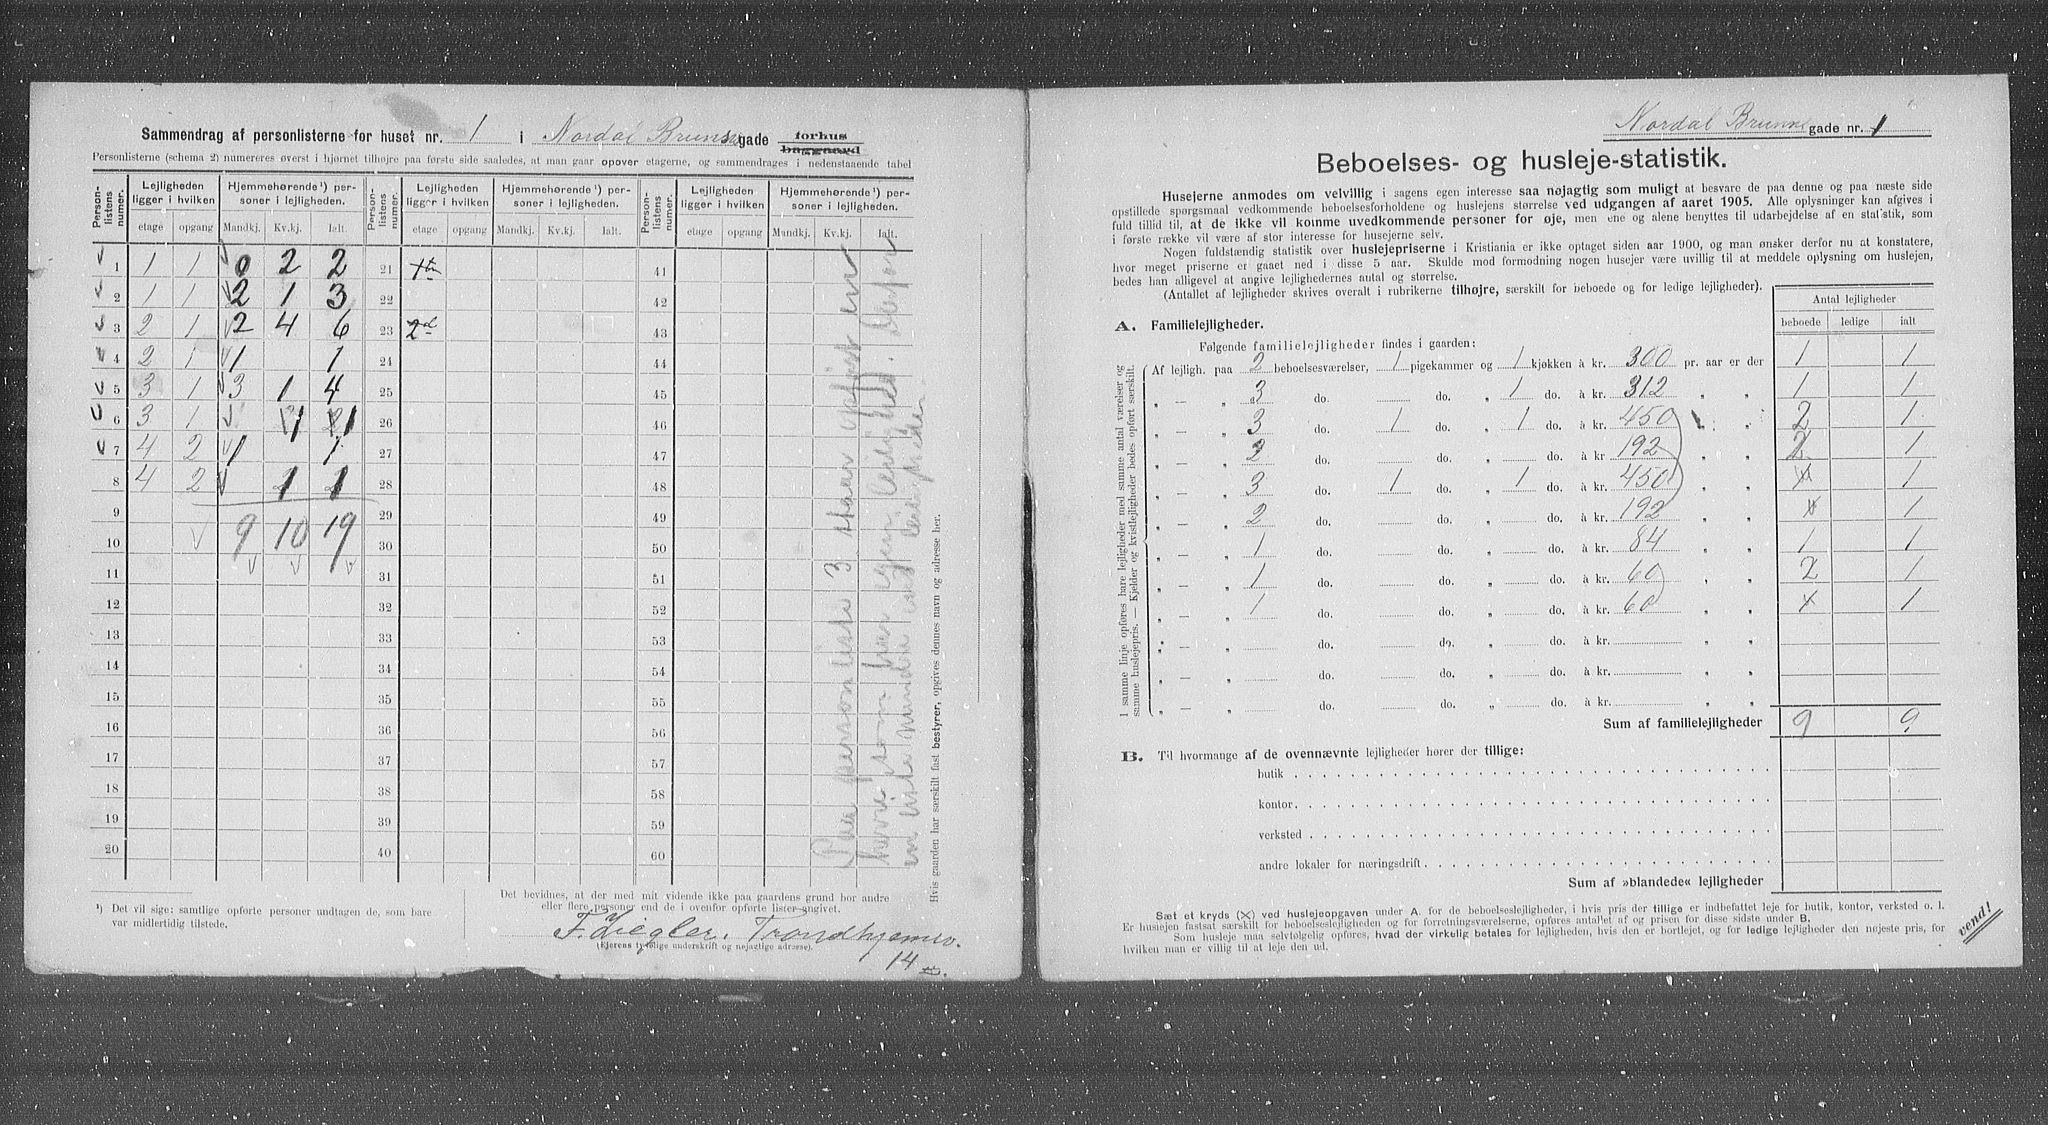 Sammendrag af personlisterne for huset nr. 1 i Nordal Bruns gade forhus baggaard
Personlisterne (schema 2) numereres øverst i hjørnet tilhøjre paa første side saaledes, at man gaar opover etagerne, og sammendrages i nedenstaaende tabel
Person-listens numer. Lejligheden ligger i hvilken Hjemmehørende¹) personer i lejligheden. Person-listens numer. Lejligheden ligger i hvilken Hjemmehørende¹) personer i lejligheden. Person-listens numer. Lejligheden ligger i hvilken Hjemmehørende¹) personer i lejligheden.
etage opgang Mandkj. Kv.kj. Ialt. etage opgang Mandkj. Kv.kj. Ialt. etage opgang Mandkj. Kv.kj. Ialt.
1 1 1 0 2 2 21 41
2 1 1 2 1 3 22 42
3 2 1 2 4 6 23 2d 43
4 2 1 1 1 24 44
5 3 1 3 1 4 25 45
6 3 1 1 1 26 46
7 4 2 1 1 27 47
8 4 2 1 1 28 48
9 9 10 19 29 49
10 30 50
11 31 51
12 32 52
13 33 53
14 34 54
15 35 55
16 36 56
17 37 57
18 38 58
19 39 59
20 40 60
Paa personliste 3 staar opført en
som har egen lejlighed. Derfor
en liste mindre end
Hvis gaarden har særskilt fast bestyrer, opgives dennes navn og adresse her.
¹) Det vil sige: samtlige opførte personer undtagen de, som bare
var midlertidig tilstede.
Det bevidnes, at der med mit vidende ikke paa gaardens grund bor andre
eller flere personer end de i ovenfor opførte lister angivet.
F. Ziegler. Trondhjemsv.
(Ejerens tydelige underskrift og nøjagtige adresse).
14
Nordal Bruns gade nr. 1
Beboelses- og husleje-statistik.
Husejerne anmodes om velvillig i sagens egen interesse saa nøjagtig som muligt at besvare de paa denne og paa næste side
opstillede spørgsmaal vedkommende beboelsesforholdene og huslejens størrelse ved udgangen af aaret 1905. Alle oplysninger kan afgives i
fuld tillid til, at de ikke vil komme uvedkommende personer for øje, men ene og alene benyttes til udarbejdelse af en statistik, som
i første række vil være af stor interesse for husejerne selv.
Nogen fuldstændig statistik over huslejepriserne i Kristiania er ikke optaget siden aar 1900, og man ønsker derfor nu at konstatere,
hvor meget priserne er gaaet ned i disse 5 aar. Skulde mod formodning nogen husejer være uvillig til at meddele oplysning om huslejen,
bedes han alligevel at angive lejlighedernes antal og størrelse.
(Antallet af lejligheder skrives overalt i rubrikerne tilhøjre, særskilt for beboede og for ledige lejligheder).
Antal lejligheder
beboede ledige ialt
A. Familielejligheder.
Følgende familielejligheder findes i gaarden:
I samme linje opføres bare lejligheder med samme antal værelser og
samme huslejepris. — Kjelder og kvistlejligheder bedes opført særskilt.
Af lejligh. paa 2 beboelsesværelser, 1 pigekammer og 1 kjøkken à kr. 300 pr. aar er der 1 1
„ — „ 3 do. do. „ 1 do. à kr. 312 „ „ 1 1
„ — „ 3 do. 1 do. „ 1 do. à kr. 450 „ „ 2 1
„ — „ 2 do. do. „ do. à kr. 192 „ „ 2 1
„ — „ 3 do. 1 do. „ 1 do. à kr. 450 „ „ 1
„ — „ 2 do. do. „ do. à kr. 192 „ „ 1
„ — „ 1 do. do. „ do. à kr. 84 „ „ 1 1
„ — „ 1 do. do. „ do. à kr. 60 „ „ 2 1
„ — „ 1 do. do. „ do. à kr. 60 „ „ 1
„ — „ do. do. „ do. à kr. „ „
„ — „ do. do. „ do. à kr. „ „
„ — „ do. do. „ do. à kr. „ „
Sum af familielejligheder 9 9
B. Til hvormange af de ovennævnte lejligheder hører der tillige:
butik
kontor
verksted
andre lokaler for næringsdrift
Sum af »blandede« lejligheder
Sæt et kryds (X) ved huslejeopgaven under A. for de beboelseslejligheder, i hvis pris der tillige er indbefattet leje for butik, kontor, verksted o. l.
Er huslejen fastsat særskilt for beboelseslejligheden og for forretningsværelserne, opføres antallet af og prisen for disse sidste under B.
Som husleje man selvfølgelig opføres, hvad der virkelig betales for lejligheden, hvis den er bortlejet, og for ledige lejligheder den nøjeste pris, for
hvilken man er villig til at leje den ud.
vend!